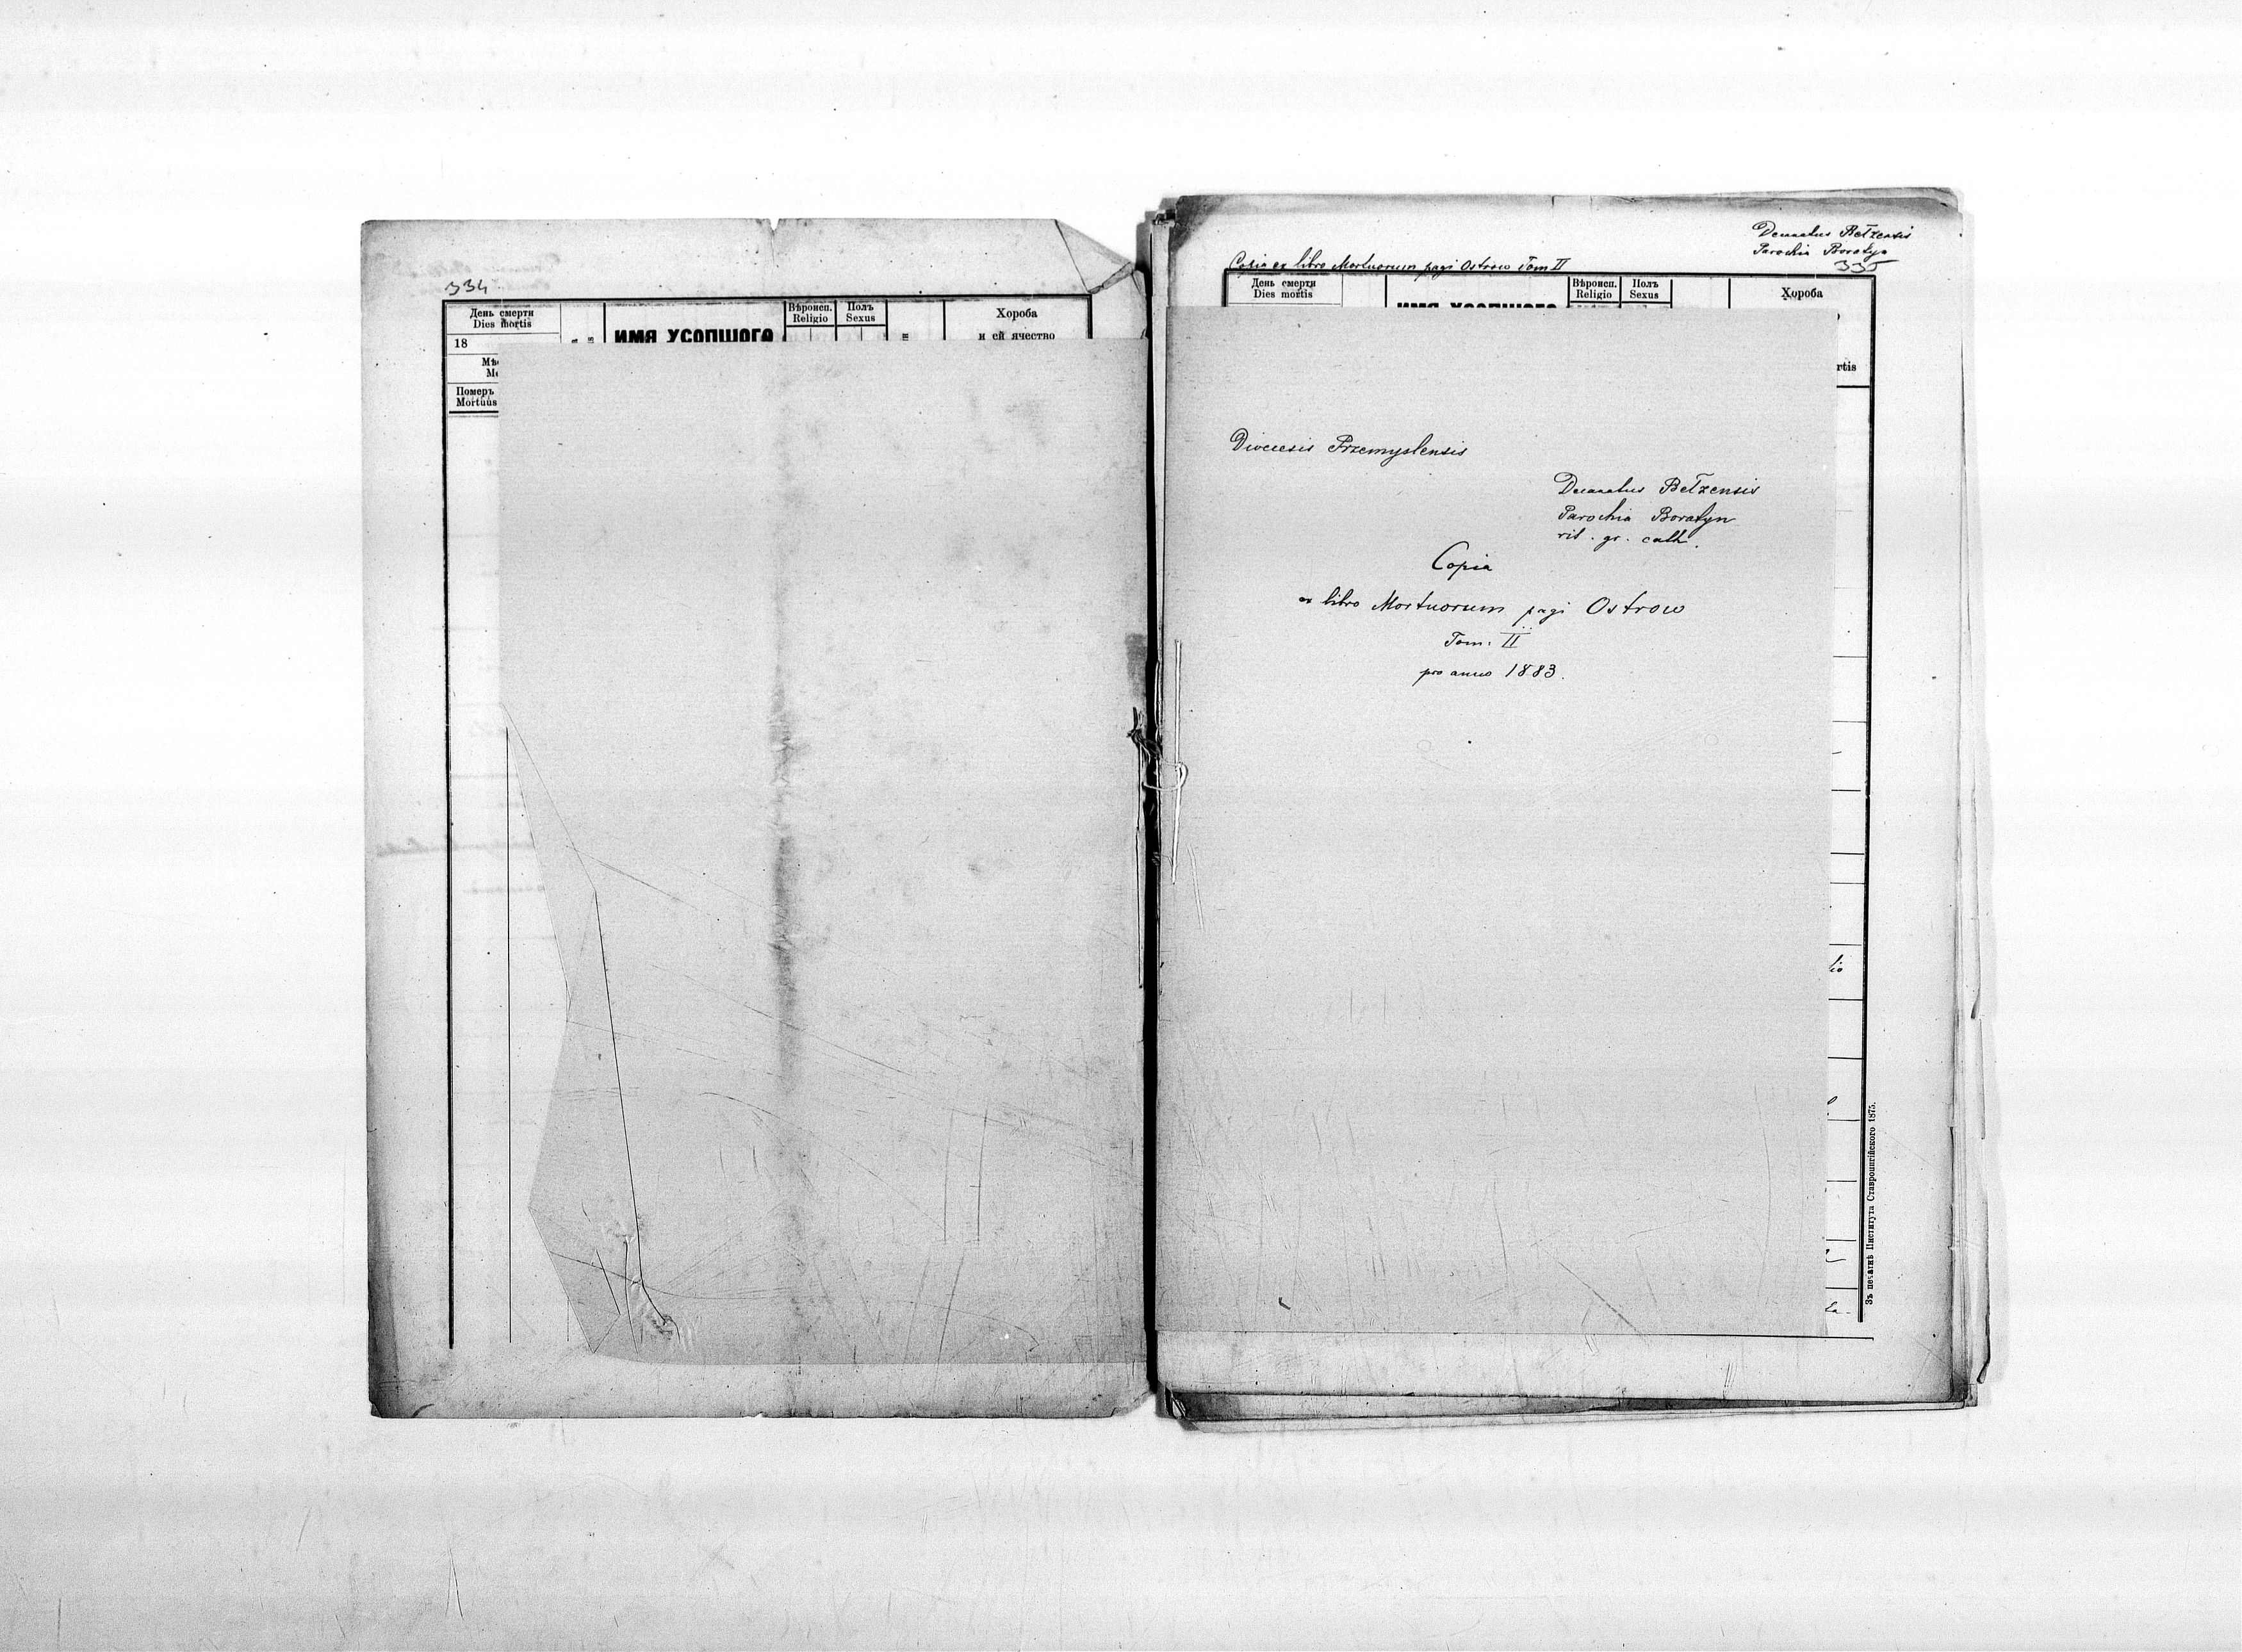 334
День смерти
Dies mortis
18
Помершъ
Mortuus
ИМЯ УСОПШОГО
Вѣроисп.
Religio
Полъ
Sexus
Хороба
и еи ячество
Decanatus Bełzensis
Parochia Boratyn
335
Copia ex libro Mortuorum pagi Ostrow Tom II
День смерти
Dies mortis
Вѣроисп.
Religio
Полъ
Sexus
Хороба
rtis
Diocesis Przemyslensis
Decanatus Bełzensis
Parochia Boratyn
rit. gr. cath.
Copia
ex libro Mortuorum pagi Ostrow
Tom. II
pro anno 1883.
Зъ печатнѣ Института Ставропигійского 1875.